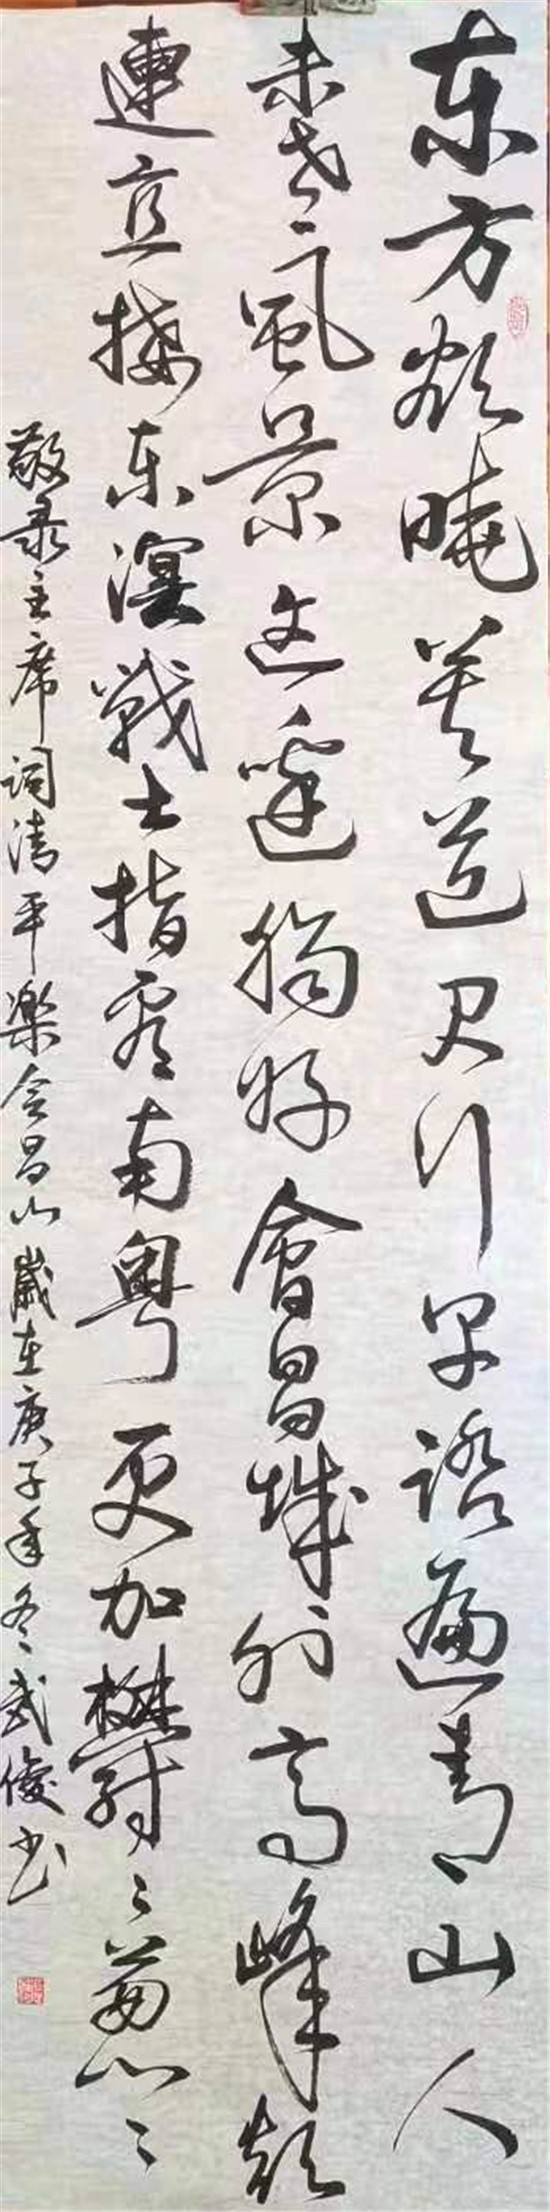 东方欲晓莫道君行早踏遍青山人
未老风景这边独好會昌城外高峰颠
連直接东溟戰士指看南粤更加欝〻葱〻
敬录主席词清平樂会昌山歲在庚子年冬武俊书